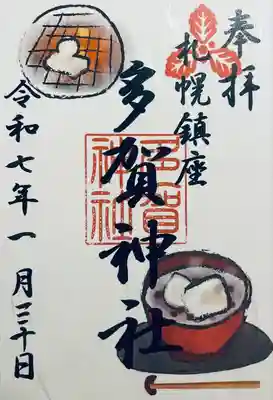 奉拝
札幌鎮座
多賀神社
多賀神社
令和七年一月三十日